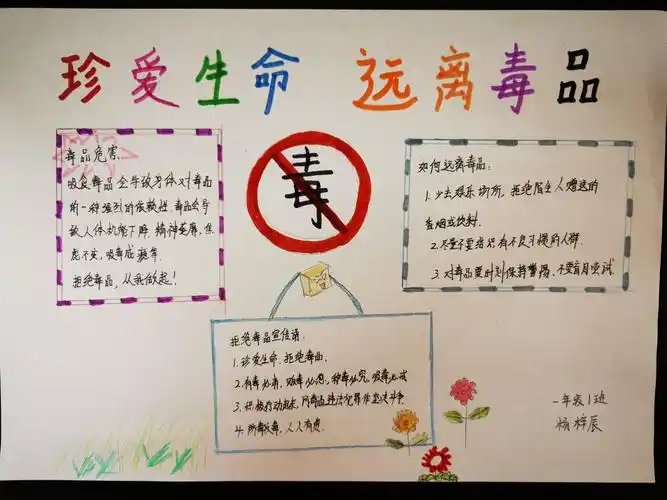 珍爱生命 远离毒品
毒品危害
吸食毒品会导致身体对毒品
的一种强烈的依赖性,毒品会导
致人体机能下降,精神萎靡,焦
虑不安,吸毒成瘾等
拒绝毒品,从我做起!
毒
如何远离毒品:
1.少去娱乐场所,拒绝陌生人赠送的
香烟或饮料.
2.尽量不要结识有不良习惯的人群.
3.对毒品要时刻保持警惕、不要盲目尝试
拒绝毒品宣传语:
1.珍爱生命,拒绝毒品.
2.有毒必肃,贩毒必惩,种毒必究,吸毒必戒
3.积极行动起来,同毒品违法犯罪作坚决斗争
4.防毒反毒,人人有责.
一年级1班
杨梓辰